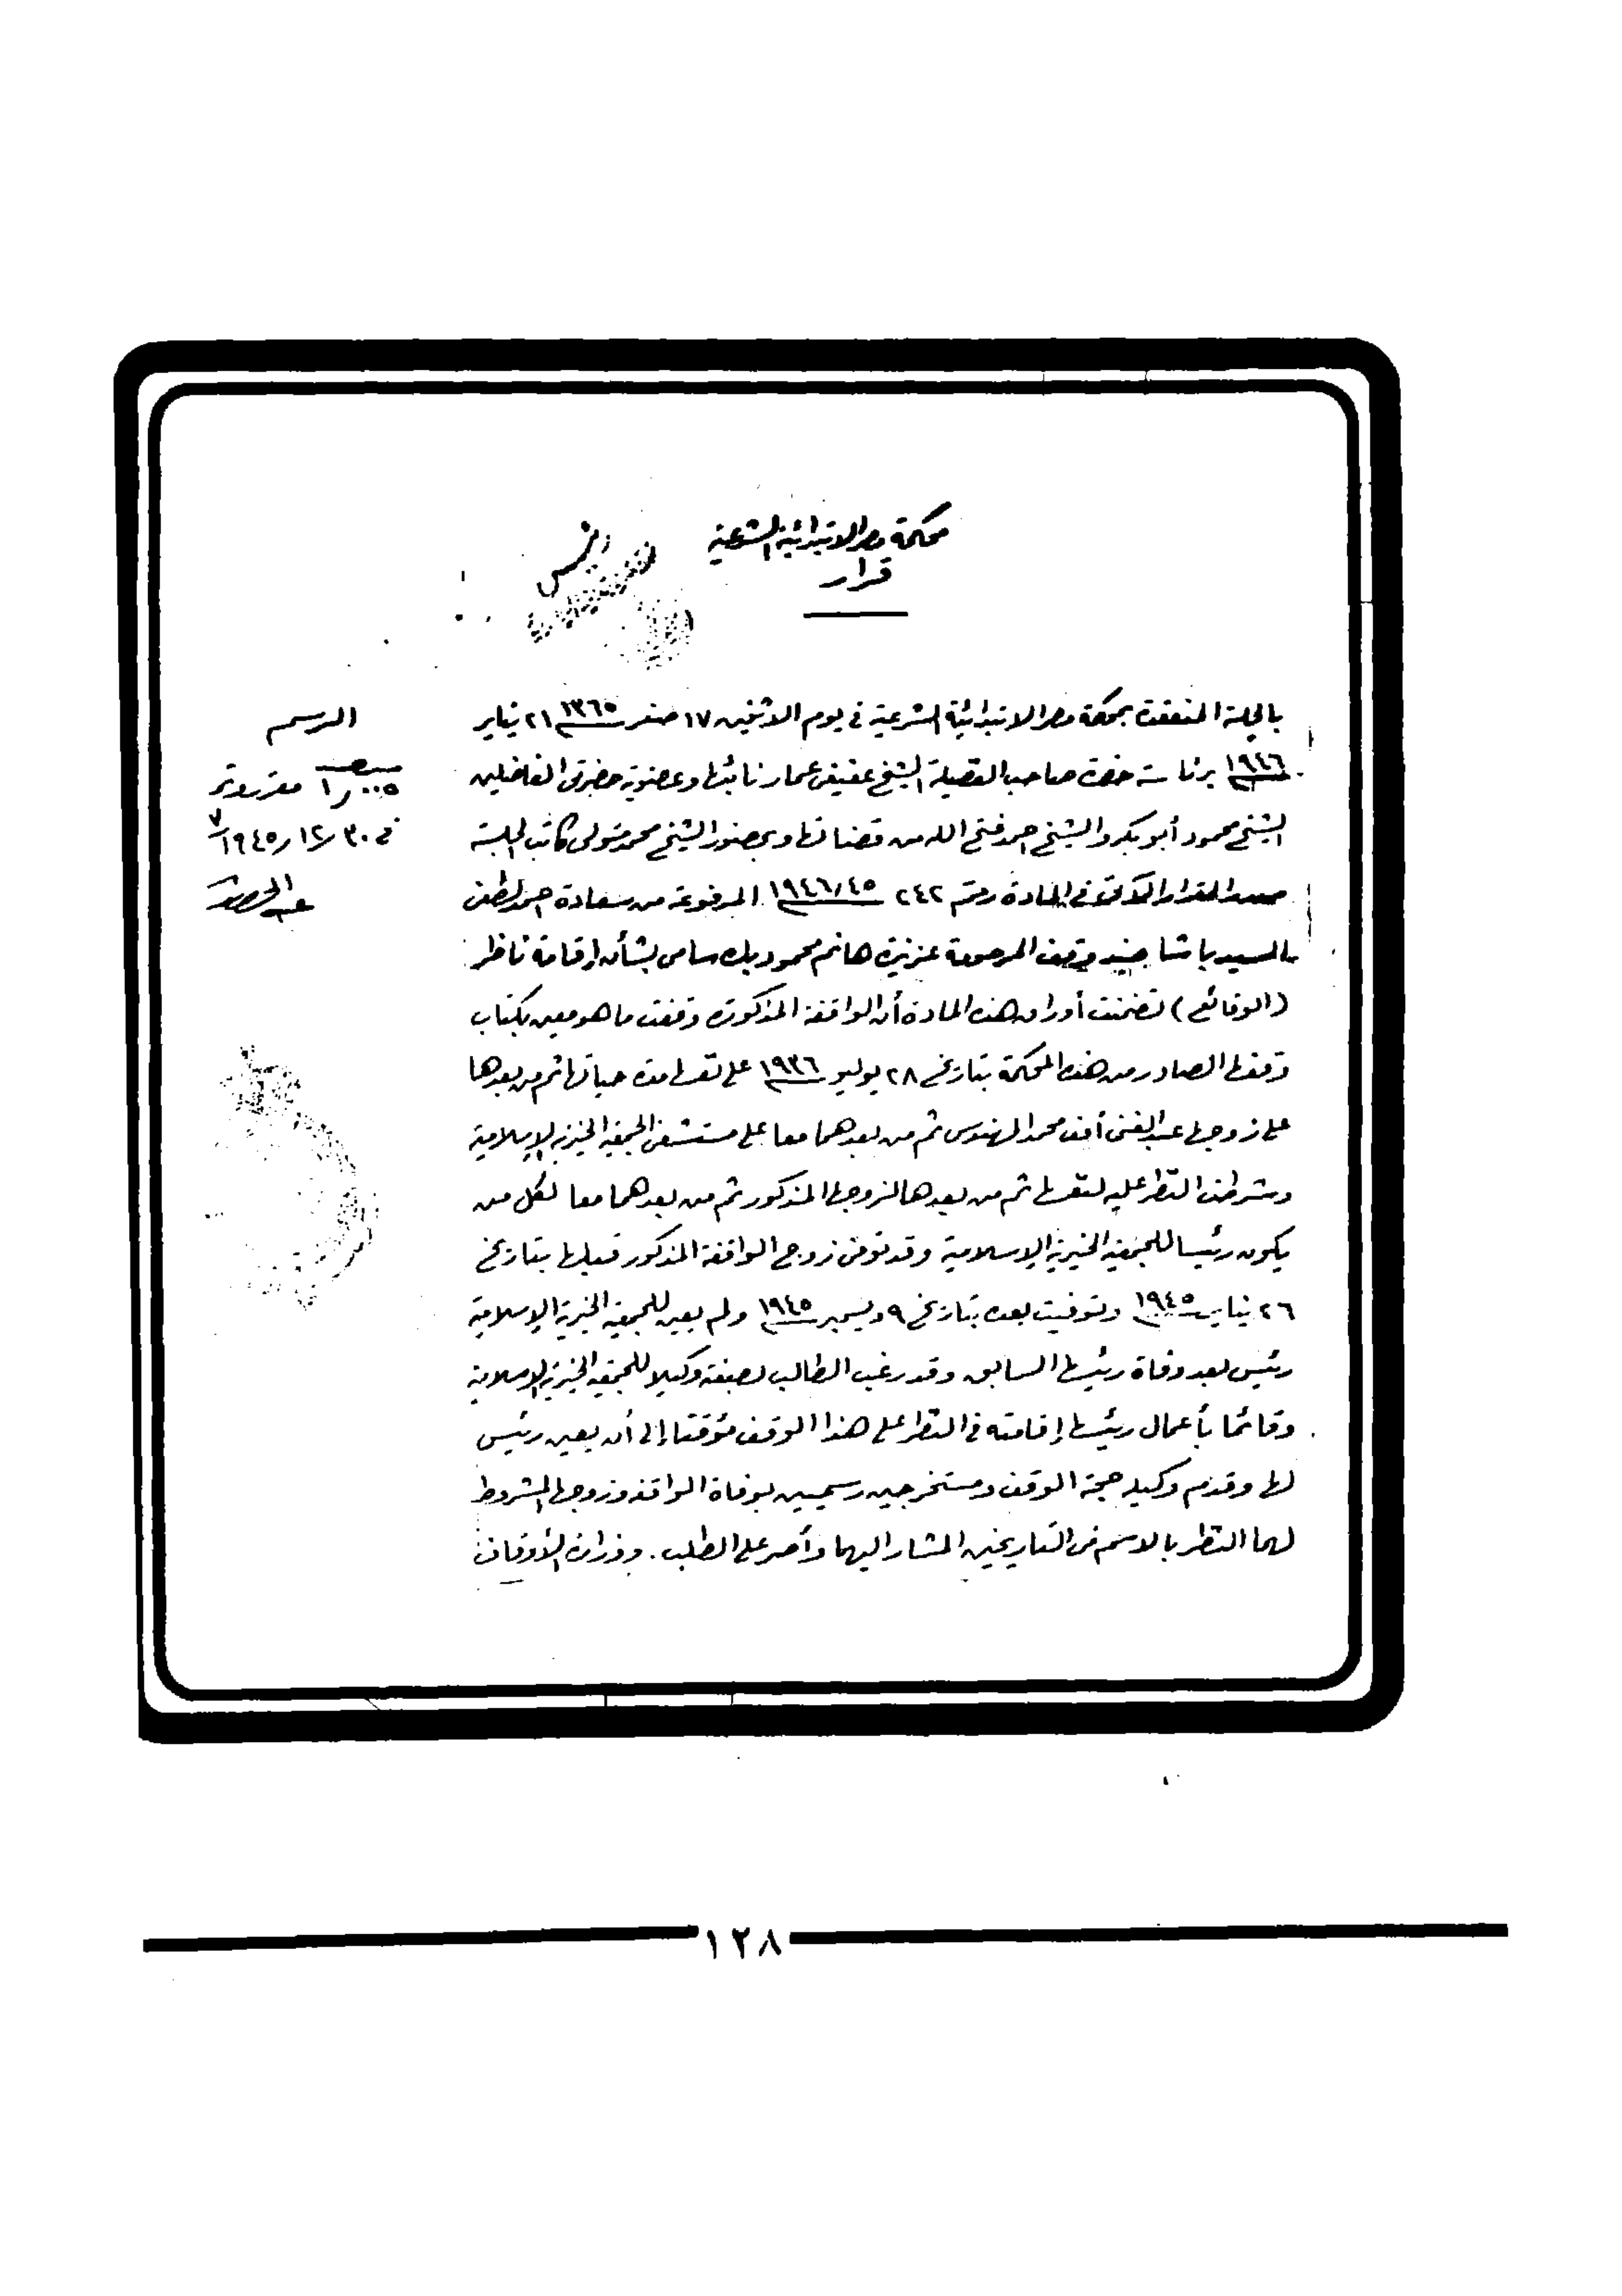 محكمة مصر الابتدائية الشرعية
قرار
بالجلسة المنعقدة بمحكمة مصر الابتدائية الشرعية فى يوم الاثنين ١٧ صفر ١٣٦٥ ٢١ يناير
١٩٤٦ برئاسة حضرة صاحب الفضيلة الشيخ عفيفى عمار نائبها وعضوية حضرتى الفاضلين
الشيخ محمود أبو بكر والشيخ احمد فتح الله من قضاتها وبحضور الشيخ محمد متولى كاتب الجلسة
صدر القرار الآتى فى المادة رقم ٢٤٢ ١٩٤٦/٤٥ المرفوعة من سعادة احمد لطفى
السيد باشا وقف المرحومة عزيزة هانم محمود بك سامى بشأن إقامة ناظر
(الوقائع) تضمنت أوراق هذه المادة أن الواقفة المذكورة وقفت ما هو معين بكتاب
وقفها الصادر من هذه المحكمة بتاريخ ٢٨ يوليو ١٩٣٦ على نفسها مدة حياتها ثم من بعدها
على زوجها عبد الغنى أفندى محمد المهندس ثم من بعدهما معا على مستشفى الجمعية الخيرية الإسلامية
وشرطت النظر عليه لنفسها ثم من بعدها لزوجها المذكور ثم من بعدهما معا لكل من
يكون رئيسا للجمعية الخيرية الإسلامية وقد توفى زوج الواقفة المذكور قبلها بتاريخ
٢٦ يناير ١٩٤٥ وتوفيت بعده بتاريخ ٩ ديسمبر ١٩٤٥ ولم يعين للجمعية الخيرية الإسلامية
رئيس بعد وفاة رئيسها السابق وقد رغب الطالب بصفته وكيلا للجمعية الخيرية الإسلامية
وقائما بأعمال رئيسها إقامته فى النظر على هذا الوقف مؤقتا إلى أن يعين رئيس
لها وقدم وكيله حجة الوقف ومستخرجين رسميين بوفاة الواقفة وزوجها المشروط
لهما النظر بالاسم فى التاريخين المشار اليهما وأصر على الطلب. ووزارة الأوقاف
الرسم
١٫٠٠٥
فى ١٩٤٥/١٢/٣٠
١٢٨